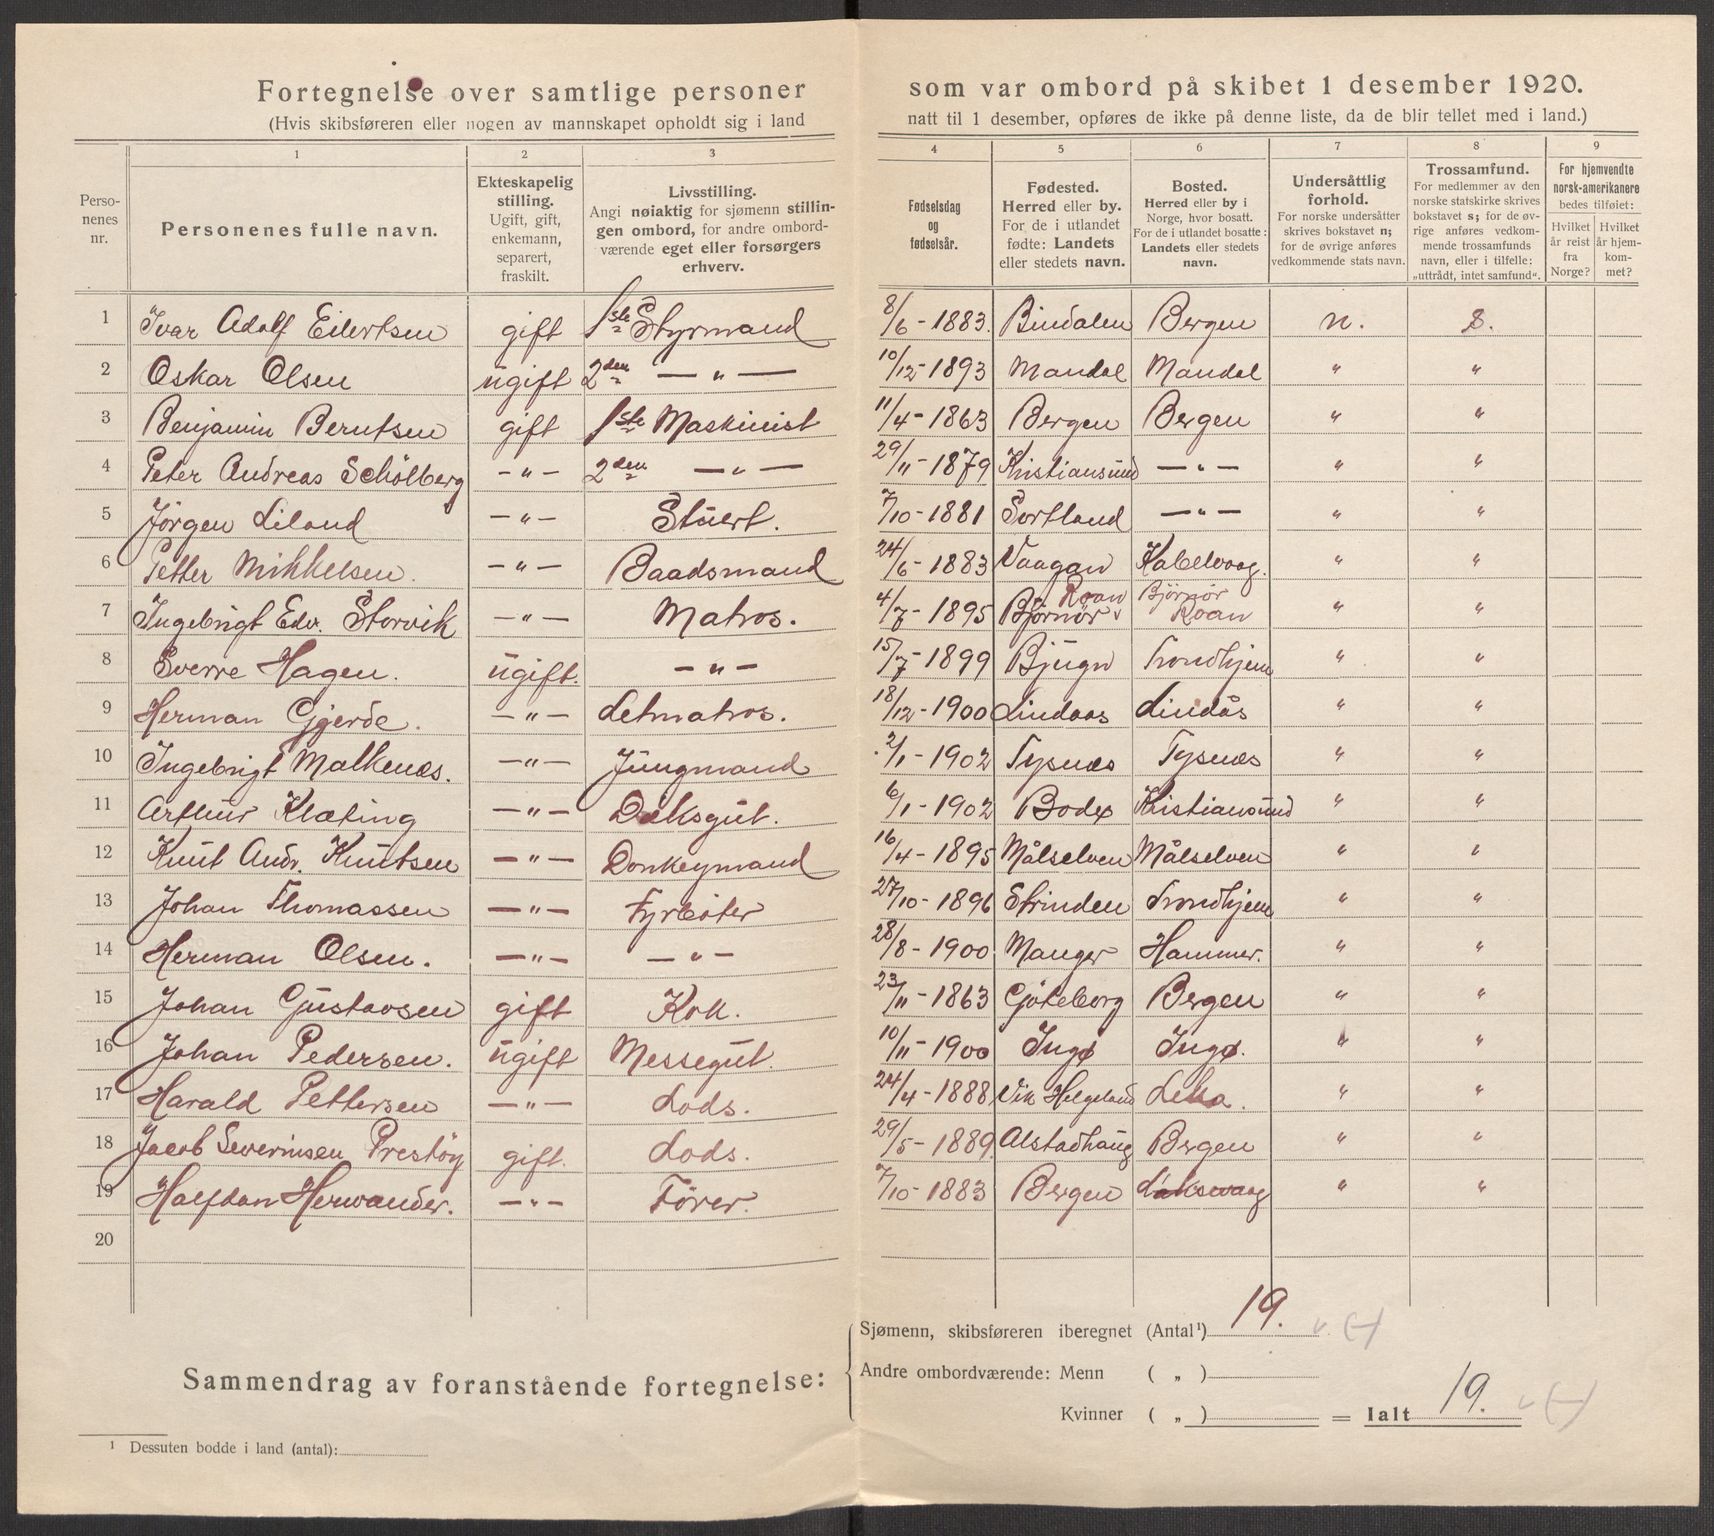 Fortegnelse over samtlige personer som var ombord på skibet 1 desember 1920.
(Hvis skibsføreren eller nogen av mannskapet opholdt sig i land natt til 1 desember, opføres de ikke på denne liste, da de blir tellet med i land.)
1 2 3 4 5 6 7 8 9
Personenes nr.
Personenes fulle navn.
Ekteskapelig stilling. Ugift, gift, enkemann, separert, fraskilt.
Livsstilling. Angi nøiaktig for sjømenn stillingen ombord, for andre ombordværende eget eller forsørgers erhverv.
Fødselsdag og fødselsår.
Fødested. Herred eller by. For de i utlandet fødte: Landets eller stedets navn.
Bosted. Herred eller by i Norge, hvor bosatt. For de i utlandet bosatte: Landets eller stedets navn.
Undersåttlig forhold. For norske undersåtter skrives bokstavet n; for de øvrige anføres vedkommende stats navn.
Trossamfund. For medlemmer av den norske statskirke skrives bokstavet s; for de øvrige anføres vedkommende trossamfunds navn, eller i tilfelle: „uttrådt, intet samfund“.
For hjemvendte norsk-amerikanere bedes tilføiet: Hvilket år reist fra Norge? Hvilket år hjemkommet?
1 Ivar Adolf Eilertsen gift 1ste Styrmand 8/6 - 1883. Bindalen Bergen n. s.
2 Oskar Olsen ugift 2den — " — 10/12 - 1893 Mandal Mandal " "
3 Benjamin Berntsen gift 1ste Maskinist 11/4 - 1863 Bergen Bergen " "
4 Peter Andreas Schölberg — " — 2den — " — 29/11 - 1879 Kristiansund — " — " "
5 Jörgen Liland — " — Stuert. 7/10 - 1881 Sortland — " — " "
6 Petter Mikkelsen. — " — Baadsmand 24/6 - 1883 Vaagan Kabelvaag. " "
7 Ingebrigt Edv. Storvik — " — Matros. 4/7 - 1895 Bjørnør Roan Bjørnør Roan " "
8 Sverre Hagen. ugift. — " — 15/7 - 1899 Bjugn Trondhjem " "
9 Herman Gjerde. — " — Letmatros. 18/12 - 1900 Lindaas Lindås " "
10 Ingebrigt Malkenæs. — " — Jungmand 2/1 - 1902 Tysnæs Tysnæs " "
11 Arthur Klæting — " — Dæksgut. 6/1 - 1902 Bodø Kristiansund " "
12 Knut Andr. Knutsen — " — Donkeymand 16/4 - 1895 Målselven Målselven " "
13 Johan Thomassen — " — Fyrbøter 27/10 - 1896 Strinden Trondhjem " "
14 Herman Olsen. — " — — " — 28/8 - 1900 Manger Hammer. " "
15 Johan Gustavsen gift Kok. 23/11 - 1863 Gøteborg Bergen " "
16 Johan Pedersen. ugift Messegut. 10/11 - 1900 Ingø Ingø. " "
17 Harald Pettersen — " — Lods. 24/4 - 1888 Vik Helgeland Leka. " "
18 Jacob Severinsen Prestöy gift. Lods. 29/5 - 1889. Alstadhaug Bergen " "
19 Halfdan Herwander. — " — Förer. 7/10 - 1883 Bergen Laksevaag " "
20
Sammendrag av foranstående fortegnelse:
Sjømenn, skibsføreren iberegnet (Antal¹) 19.
Andre ombordværende: Menn ( „ )
Kvinner ( „ ) = Ialt 19.
¹ Dessuten bodde i land (antal):